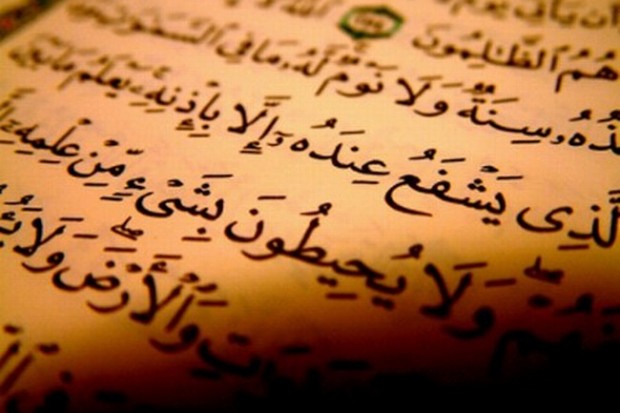 أَن يَأْتِىَ يَوْمٌ
هُمُ ٱلظَّـٰلِمُونَ ٢٥٤ ٱللَّهُ
سِنَةٌ وَلَا نَوْمٌ لَّهُۥ مَا فِى ٱلسَّمَـٰوَٰتِ
ٱلَّذِى يَشْفَعُ عِندَهُۥٓ إِلَّا بِإِذْنِهِۦ يَعْلَمُ مَا بَيْنَ
وَلَا يُحِيطُونَ بِشَىْءٍ مِّنْ عِلْمِهِۦٓ
وَٱلْأَرْضَ وَلَا